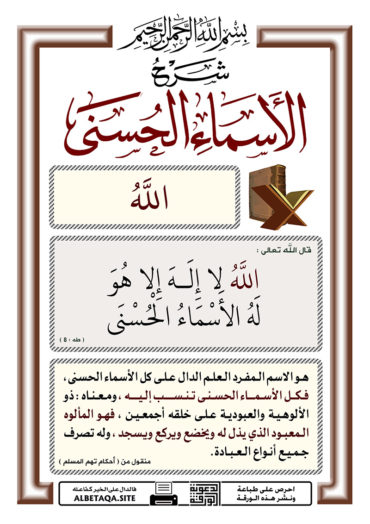 بسم الله الرحمن الرحيم
شرح
الأسماء الحسنى
اللَّهُ
قال الله تعالى :
اللَّهُ لا إِلَـهَ إِلا هُوَ
لَهُ الأَسْمَاءُ الْحُسْنَى
( طه : 8 )
هـو الاسـم المـفـرد العـلـم الدال على كل الأسماء الحسنى ،
فكـل الأسمـاء الحسنى تنتسـب إليـه ، ومعـناه : ذو
الألوهية والعبودية على خلقه أجمعين ، فهو المألوه
المعبود الذي يذل له ويخضع ويركع ويسجد ، وله تصرف
جميع أنواع العـبادة.
منقول من ( أحكام تهم المسلم )
احرص على طباعة
ونشر هذه الورقة
الدعوية
الورقة
فالدال على الخير كفاعله
ALBETAQA.SITE